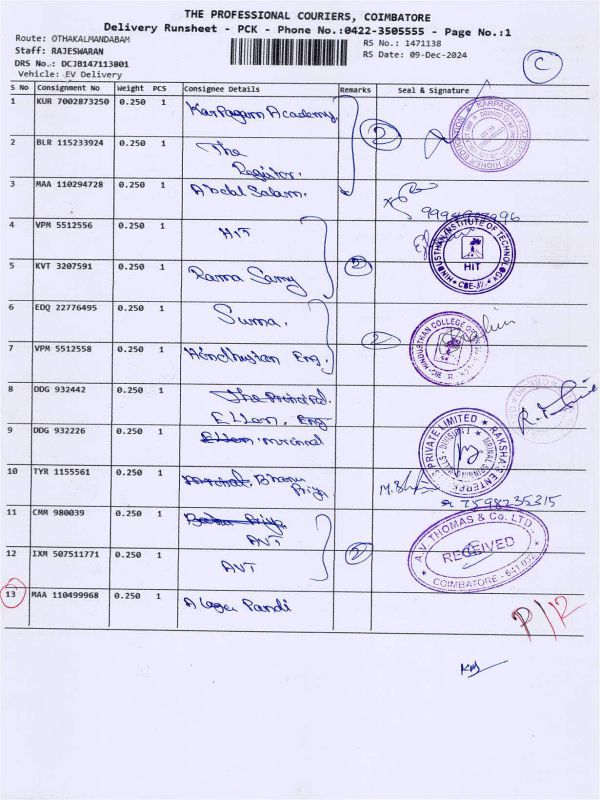 THE PROFESSIONAL COURIERS, COIMBATORE
Delivery Runsheet - PCK - Phone No.:0422-3505555 - Page No.:1
Route: OTHAKALMANDABAM
Staff: RAJESWARAN
DRS No.: DCJB147113801
Vehicle: EV Delivery
RS No.: 1471138
RS Date: 09-Dec-2024
C
S No Consignment No Weight PCS Consignee Details Remarks Seal & Signature
1 KUR 7002873250 0.250 1 Karpagam Academy.
2
2 BLR 115233924 0.250 1 The
Register.
3 MAA 110294728 0.250 1 Abdul Salam.
4 VPM 5512556 0.250 1 HIT
HINDUSTHAN INSTITUTE OF TECHNOLOGY
HIT
CBE-32
5 KVT 3207591 0.250 1 Rama Samy 2
6 EDQ 22776495 0.250 1 Suma.
2
HINDUSTHAN COLLEGE
7 VPM 5512558 0.250 1 Hindhustan Eng.
8 DDG 932442 0.250 1 The Principal.
Ellen. Eng
9 DDG 932226 0.250 1 Ellen mrinal
PRIVATE LIMITED
RAKSHA'S ENTERPRISES
MRINAL SPINNING MILLS - DIVISION I
10 TYR 1155561 0.250 1 mrinal Bhanu
Priya
7598235315
11 CMM 980039 0.250 1 Banu Priya
AVT
12 IXM 507511771 0.250 1 AVT 2
A.V. THOMAS & Co. LTD.
RECEIVED
COIMBATORE - 641 032
13 MAA 110499968 0.250 1 Alagu Pandi
P/R